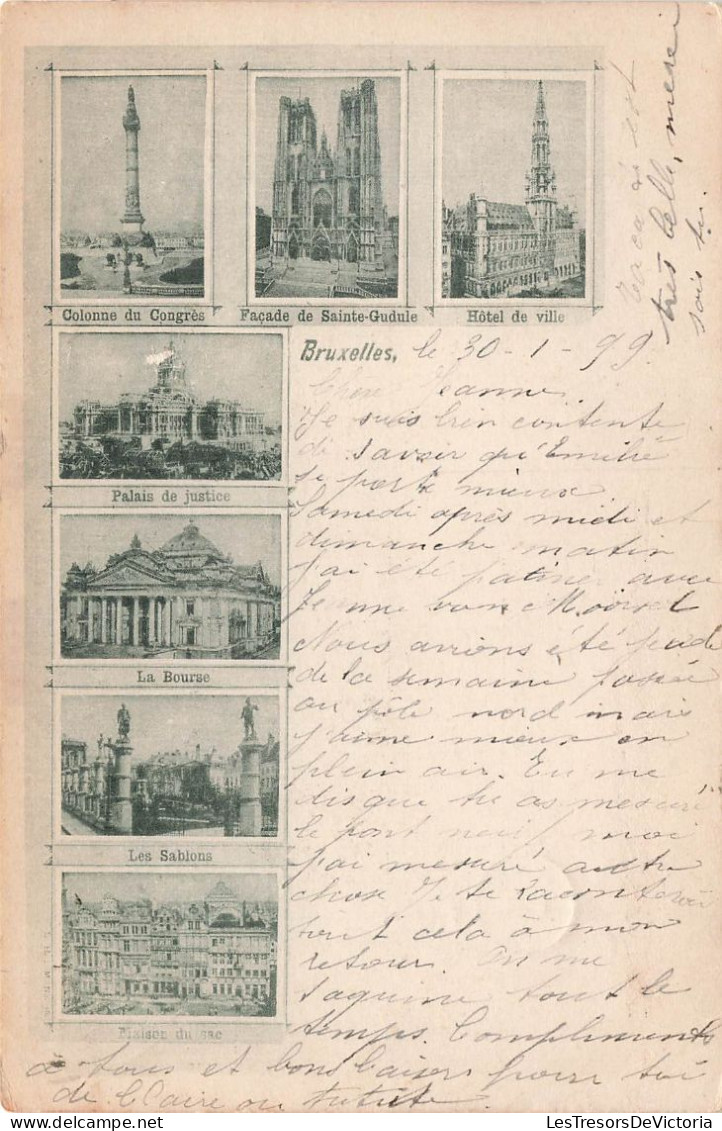 Colonne du Congrès
Façade de Sainte-Gudule
Hôtel de ville
Palais de justice
La Bourse
Les Sablons
Maison du sac
Bruxelles, le 30-1-99.
Chère Jeanne.
Je suis bien contente
de savoir qu'Emilie
se porte mieux.
Samedi après midi et
dimanche matin
j'ai été patiner avec
Jeanne van
Nous avions été
de la semaine passée
au pôle nord mais
j'aime mieux en
plein air. Tu me
dis que tu as mesuré
le pont neuf moi
j'ai mesuré autre
chose Je te raconterai
tout cela à mon
retour. On me
taquine tout le
temps. Compliments
à tous et bons baisers pour toi
de Claire ou
très belle, merci
LesTresorsDeVictoria
Delcampe.net